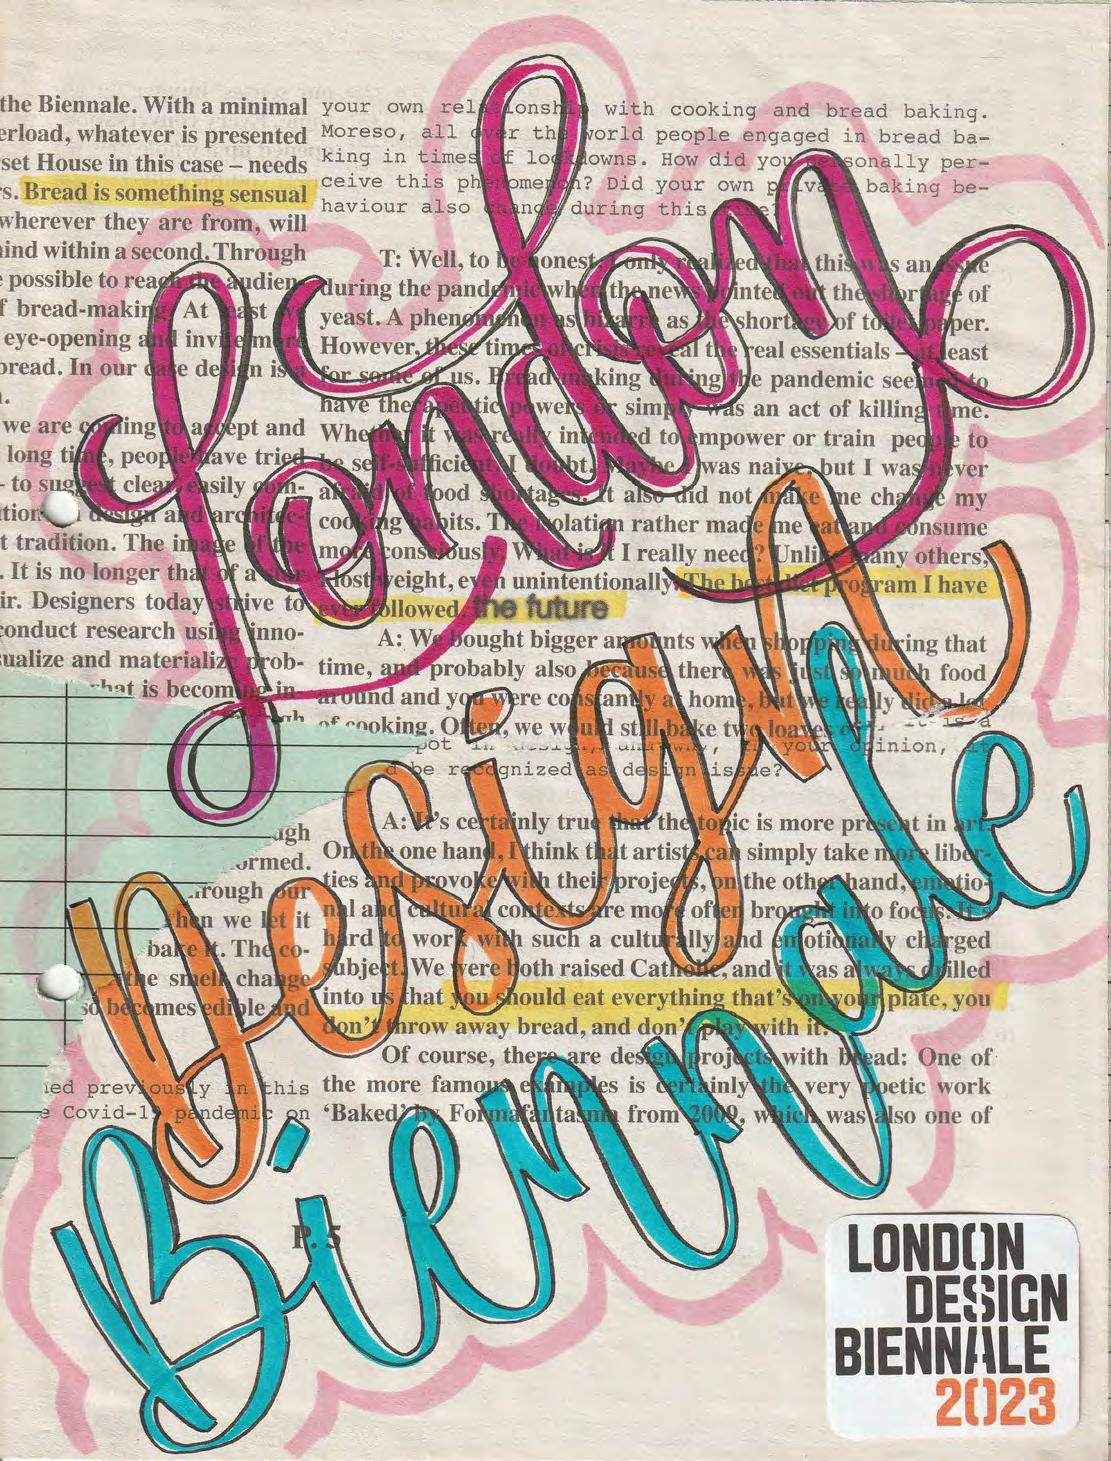 London
Design
Biennale
the Biennale. With a minimal
erload, whatever is presented
rset House in this case – needs
rs. Bread is something sensual
wherever they are from, will
mind within a second. Through
e possible to reach the audien-
f bread-making. At least we
eye-opening and invite more
bread. In our case design is a
we are coming to accept and
long time, people have tried
- to suggest clear, easily com-
design and architec-
t tradition. The image of the
. It is no longer that of a star
ir. Designers today strive to
conduct research using inno-
sualize and materialize prob-
that is becoming in-
ugh
ormed.
through our
when we let it
bake it. The co-
the smell change
so becomes edible and
ned previously in this
e Covid-19 pandemic on
your own relationship with cooking and bread baking.
Moreso, all over the world people engaged in bread ba-
king in times of lockdowns. How did you personally per-
ceive this phenomenon? Did your own private baking be-
haviour also change during this time?
T: Well, to be honest, I only realized that this was an issue
during the pandemic when the news pointed out the shortage of
yeast. A phenomenon as bizarre as the shortage of toilet paper.
However, these times of crisis reveal the real essentials – at least
for some of us. Bread making during the pandemic seemed to
have therapeutic powers or simply was an act of killing time.
Whether it was really intended to empower or train people to
be self-sufficient, I doubt. Maybe I was naive, but I was never
afraid of food shortages. It also did not make me change my
cooking habits. The isolation rather made me eat and consume
more consciously. What is it I really need? Unlike many others,
I lost weight, even unintentionally. The best diet program I have
ever followed. the future
A: We bought bigger amounts when shopping during that
time, and probably also because there was just so much food
around and you were constantly at home, but we really did a lot
of cooking. Often, we would still bake two loaves
pot in design, and why, in your opinion, it
d be recognized as design issue?
A: It's certainly true that the topic is more present in art.
On the one hand, I think that artists can simply take more liber-
ties and provoke with their projects, on the other hand, emotio-
nal and cultural contexts are more often brought into focus. It's
hard to work with such a culturally and emotionally charged
subject. We were both raised Catholic, and it was always drilled
into us that you should eat everything that's on your plate, you
don't throw away bread, and don't play with it.
Of course, there are design projects with bread: One of
the more famous examples is certainly the very poetic work
‘Baked’ by Formafantasma from 2009, which was also one of
P. 5
LONDON
DESIGN
BIENNALE
2023